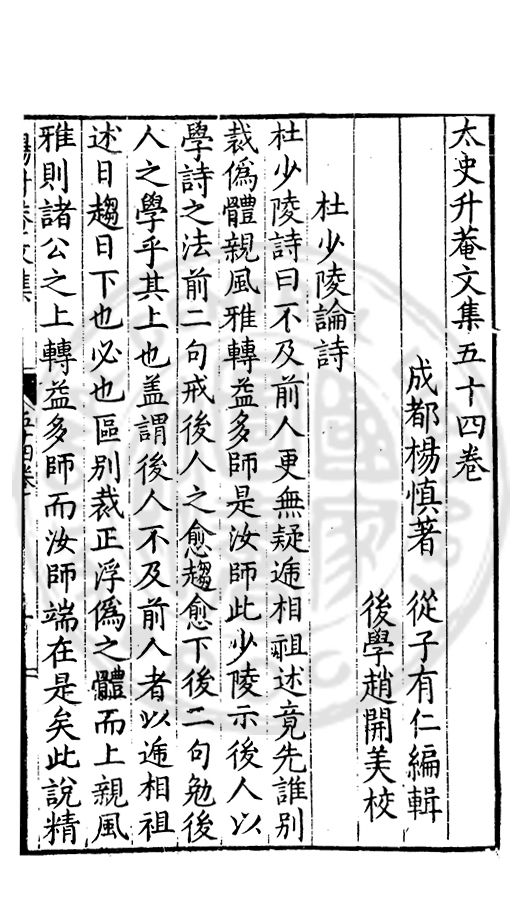 太史升菴文集五十四卷
成都楊慎著　從子有仁編輯
後學趙開美校
杜少陵論詩
杜少陵詩曰不及前人更無疑逓相祖述竟先誰别
裁僞體親風雅轉益多師是汝師此少陵示後人以
學詩之法前二句戒後人之愈趨愈下後二句勉後
人之學乎其上也盖謂後人不及前人者以逓相祖
述日趨日下也必也區别裁正浮僞之體而上親風
雅則諸公之上轉益多師而汝師端在是矣此說精